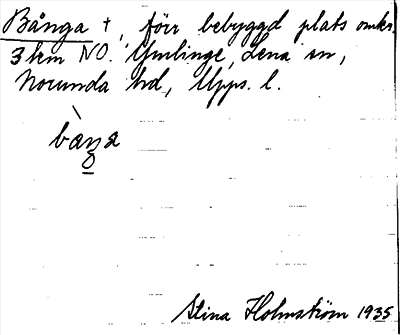 Bånga †, förr bebyggd plats omkr.
3 km NO. Ymlinge, Lena sn,
Norunda hd, Upps. l.
Stina Holmström 1935